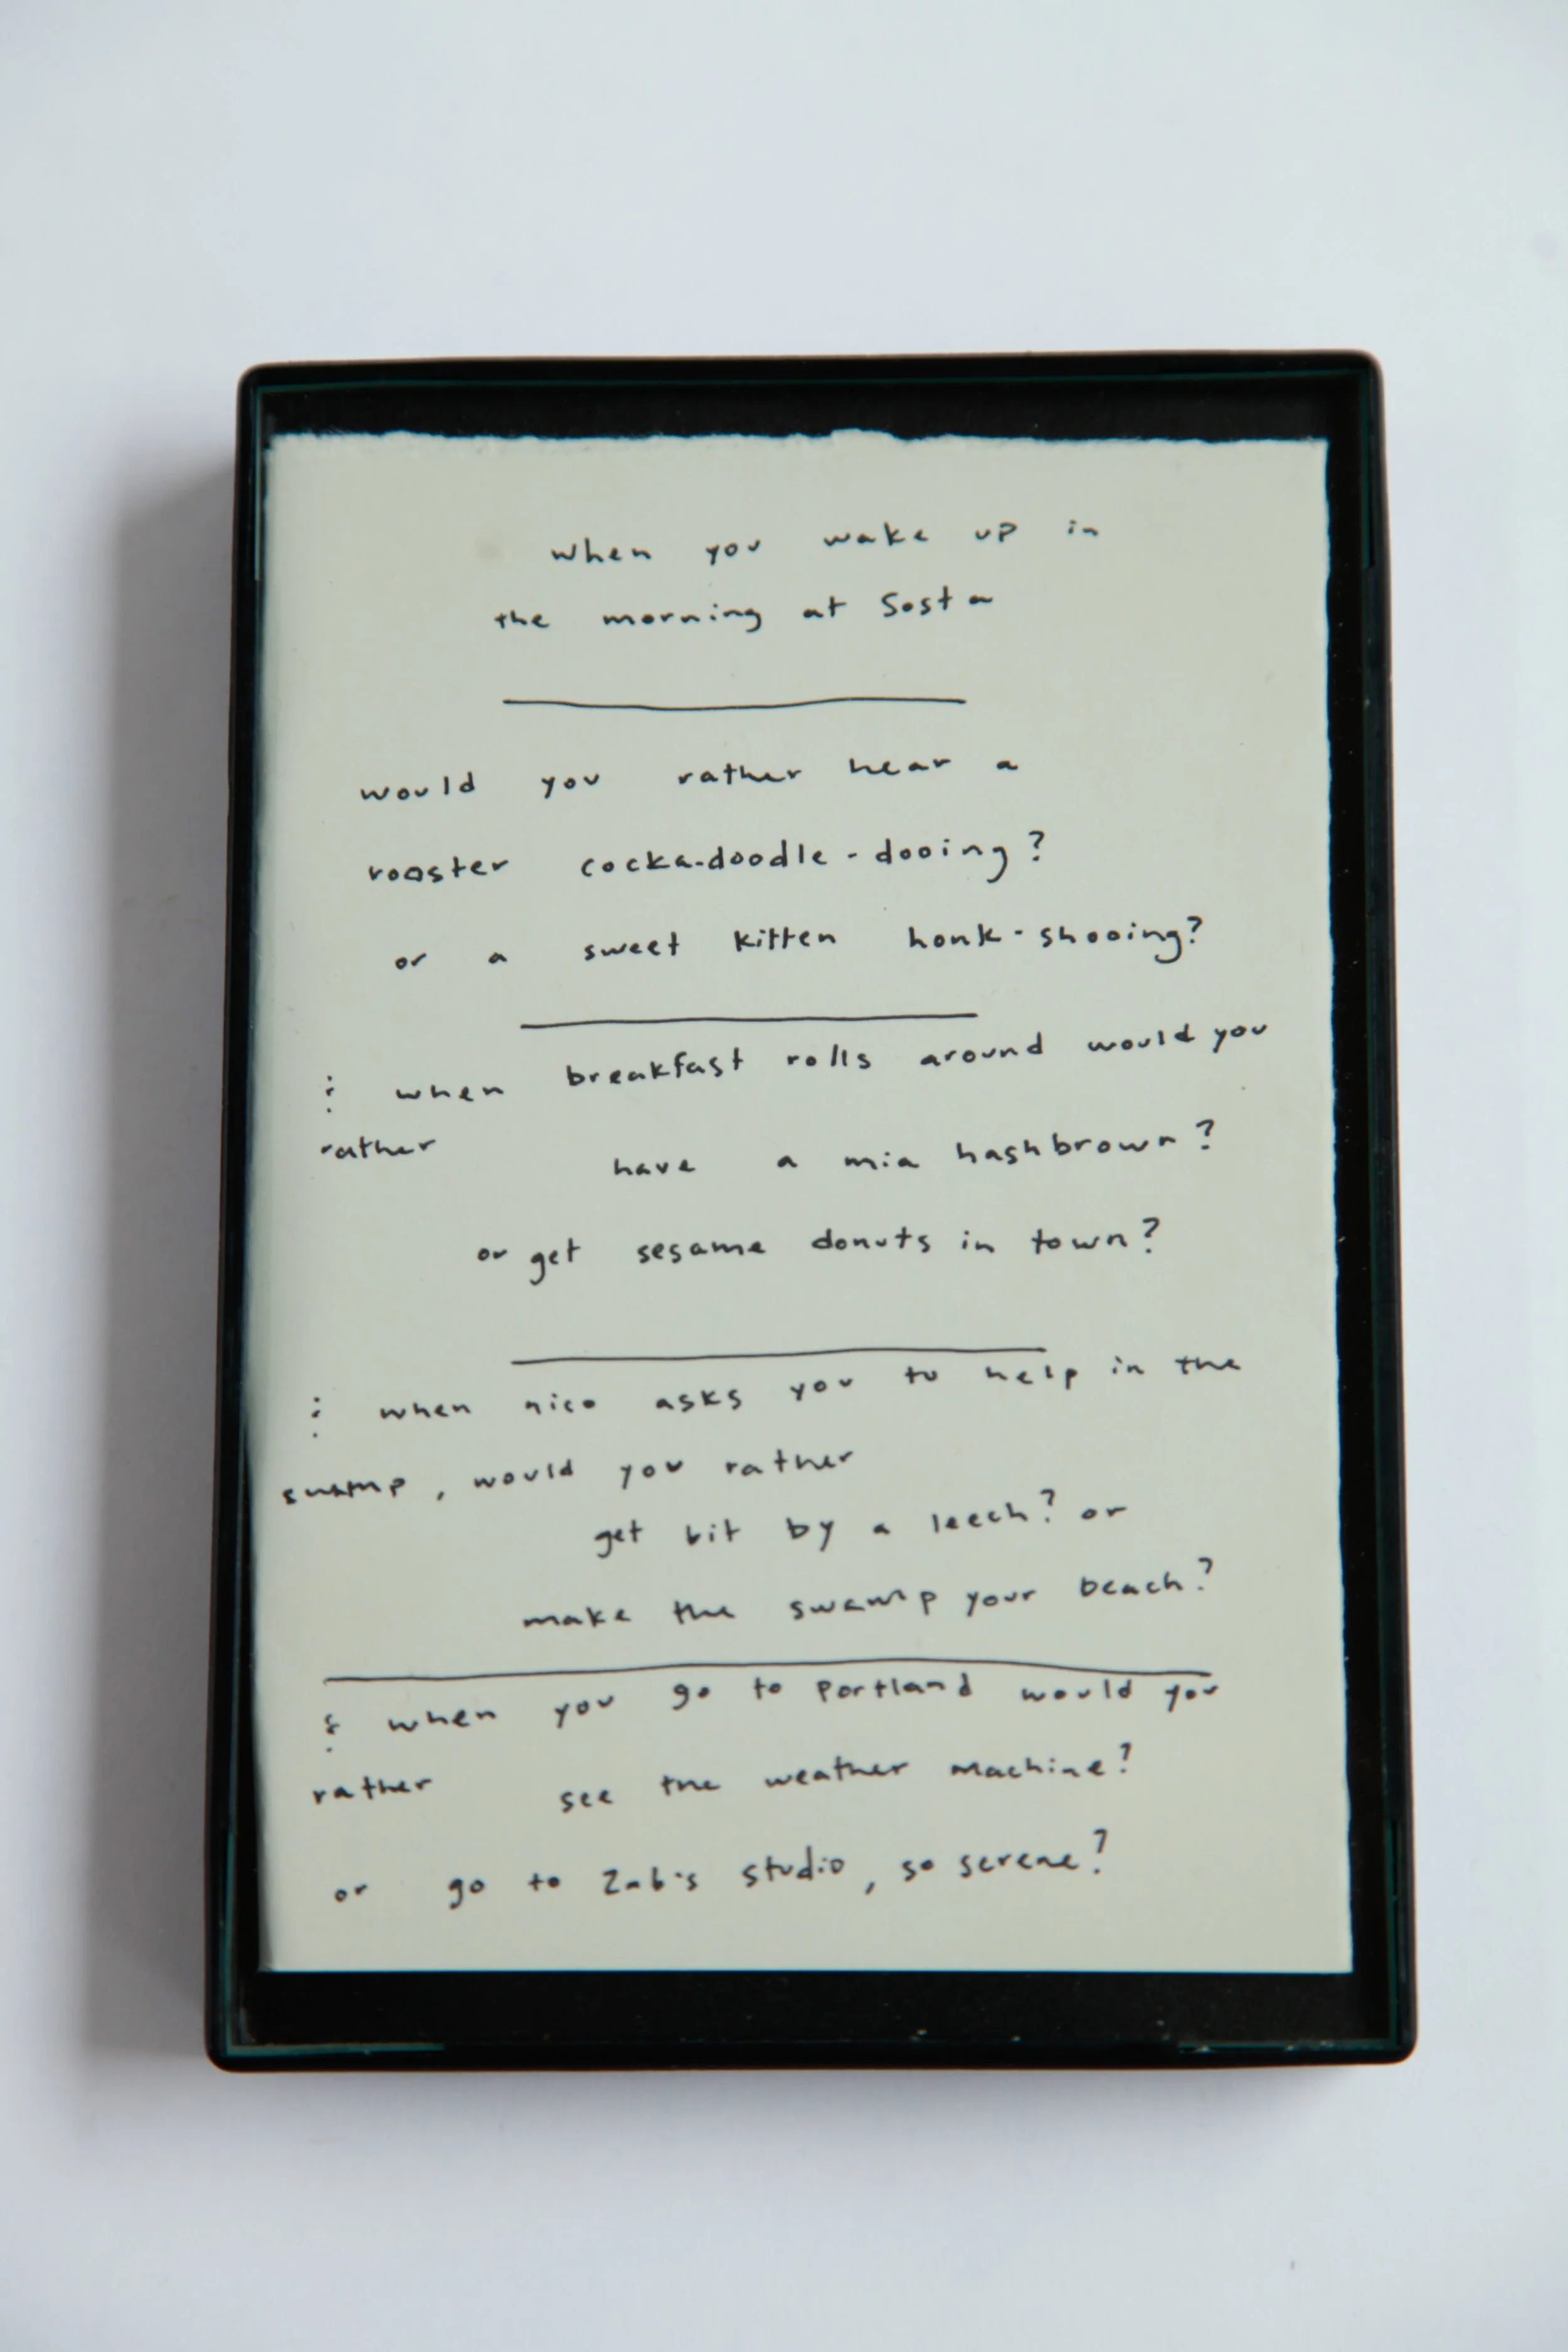 when you wake up in
the morning at Sosta
would you rather hear a
rooster cocka-doodle-dooing?
or a sweet kitten honk-shooing?
& when breakfast rolls around would you
rather have a mia hashbrown?
or get sesame donuts in town?
& when nico asks you to help in the
swamp, would you rather
get bit by a leech? or
make the swamp your beach?
& when you go to portland would you
rather see the weather machine?
or go to Zab's studio, so serene?